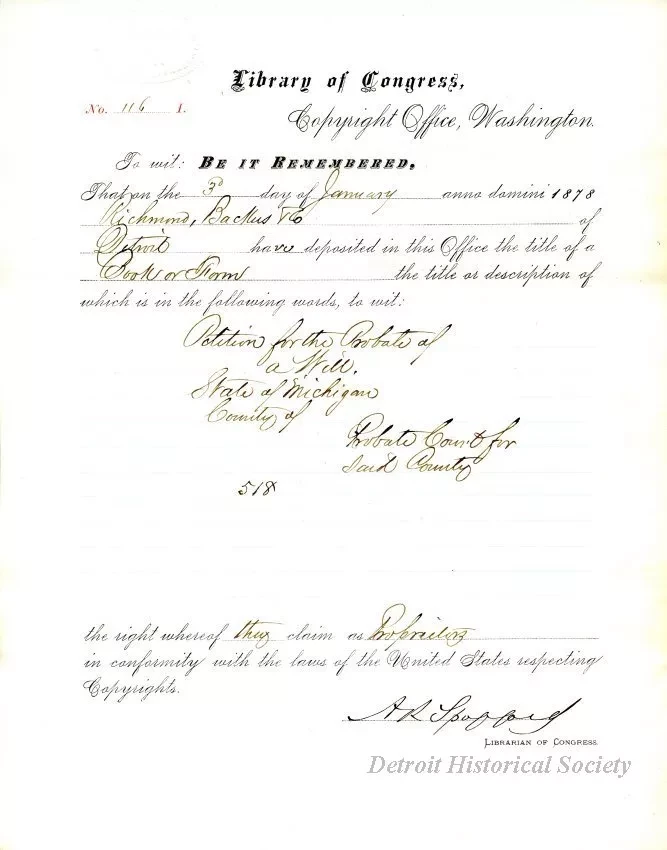 Library of Congress,
No. 116 I.
Copyright Office, Washington.
To wit: BE IT REMEMBERED.
That on the 3d day of January anno domini 1878
Richmond, Backus & Co of
Detroit have deposited in this Office the title of a
Book or Form the title or description of
which is in the following words, to wit:
Petition for the Probate of
a Will.
State of Michigan
County of
Probate Court for
said County
518
the right whereof they claim as Proprietors
in conformity with the laws of the United States respecting
Copyrights.
A R Spofford
LIBRARIAN OF CONGRESS.
Detroit Historical Society